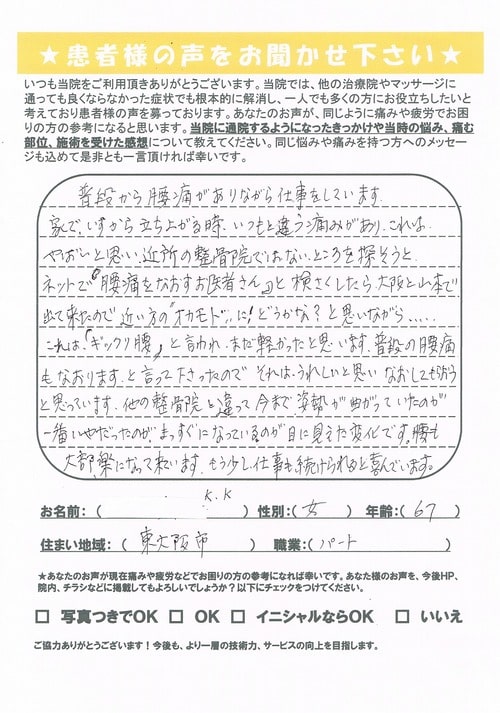 ★患者様の声をお聞かせ下さい★
いつも当院をご利用頂きありがとうございます。当院では、他の治療院やマッサージに
通っても良くならなかった症状でも根本的に解消し、一人でも多くの方にお役立ちしたいと
考えており患者様の声を募っております。あなたのお声が、同じように痛みや疲労でお困
りの方の参考になると思います。当院に通院するようになったきっかけや当時の悩み、痛む
部位、施術を受けた感想について教えてください。同じ悩みや痛みを持つ方へのメッセー
ジも込めて是非とも一言頂ければ幸いです。
普段から腰痛がありながら仕事をしています。
家で、いすから立ち上がる時、いつもと違う痛みがあり、これは
やばいと思い、近所の整骨院ではないところを探そうと
ネットで『腰痛をなおすお医者さん』と検さくしたら、大阪と山本で
出て来たので近い方の"オカモト"に!どうかな?と思いながら.....
これは『ギックリ腰』と言われ、まだ軽かったと思います。普段の腰痛
もなおります。と言って下さったので それはうれしいと思い なおしてもらおう
と思っています。他の整骨院と違って 今まで姿勢が曲がっていたのが
一番いやだったのが、まっすぐになっているのが目に見えた変化です。腰も
大部楽になって来ています。もう少し仕事も続けられると喜んでいます。
お名前:( K.K ) 性別:( 女 ) 年齢:( 67 )
住まい地域:( 東大阪市 ) 職業:( パート )
★あなたのお声が現在痛みや疲労などでお困りの方の参考になれば幸いです。あなた様のお声を、今後HP、
院内、チラシなどに掲載してもよろしいでしょうか?以下にチェックをつけてください。
□ 写真つきでOK □ OK □ イニシャルならOK □ いいえ
ご協力ありがとうございます!今後も、より一層の技術力、サービスの向上を目指します。